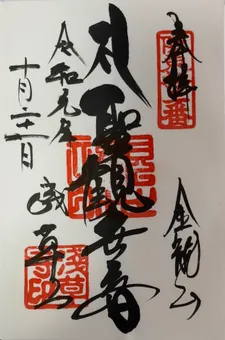 奉拝
金龍山
聖観世音
令和元年
十月二十一日
浅草寺
浅草寺印